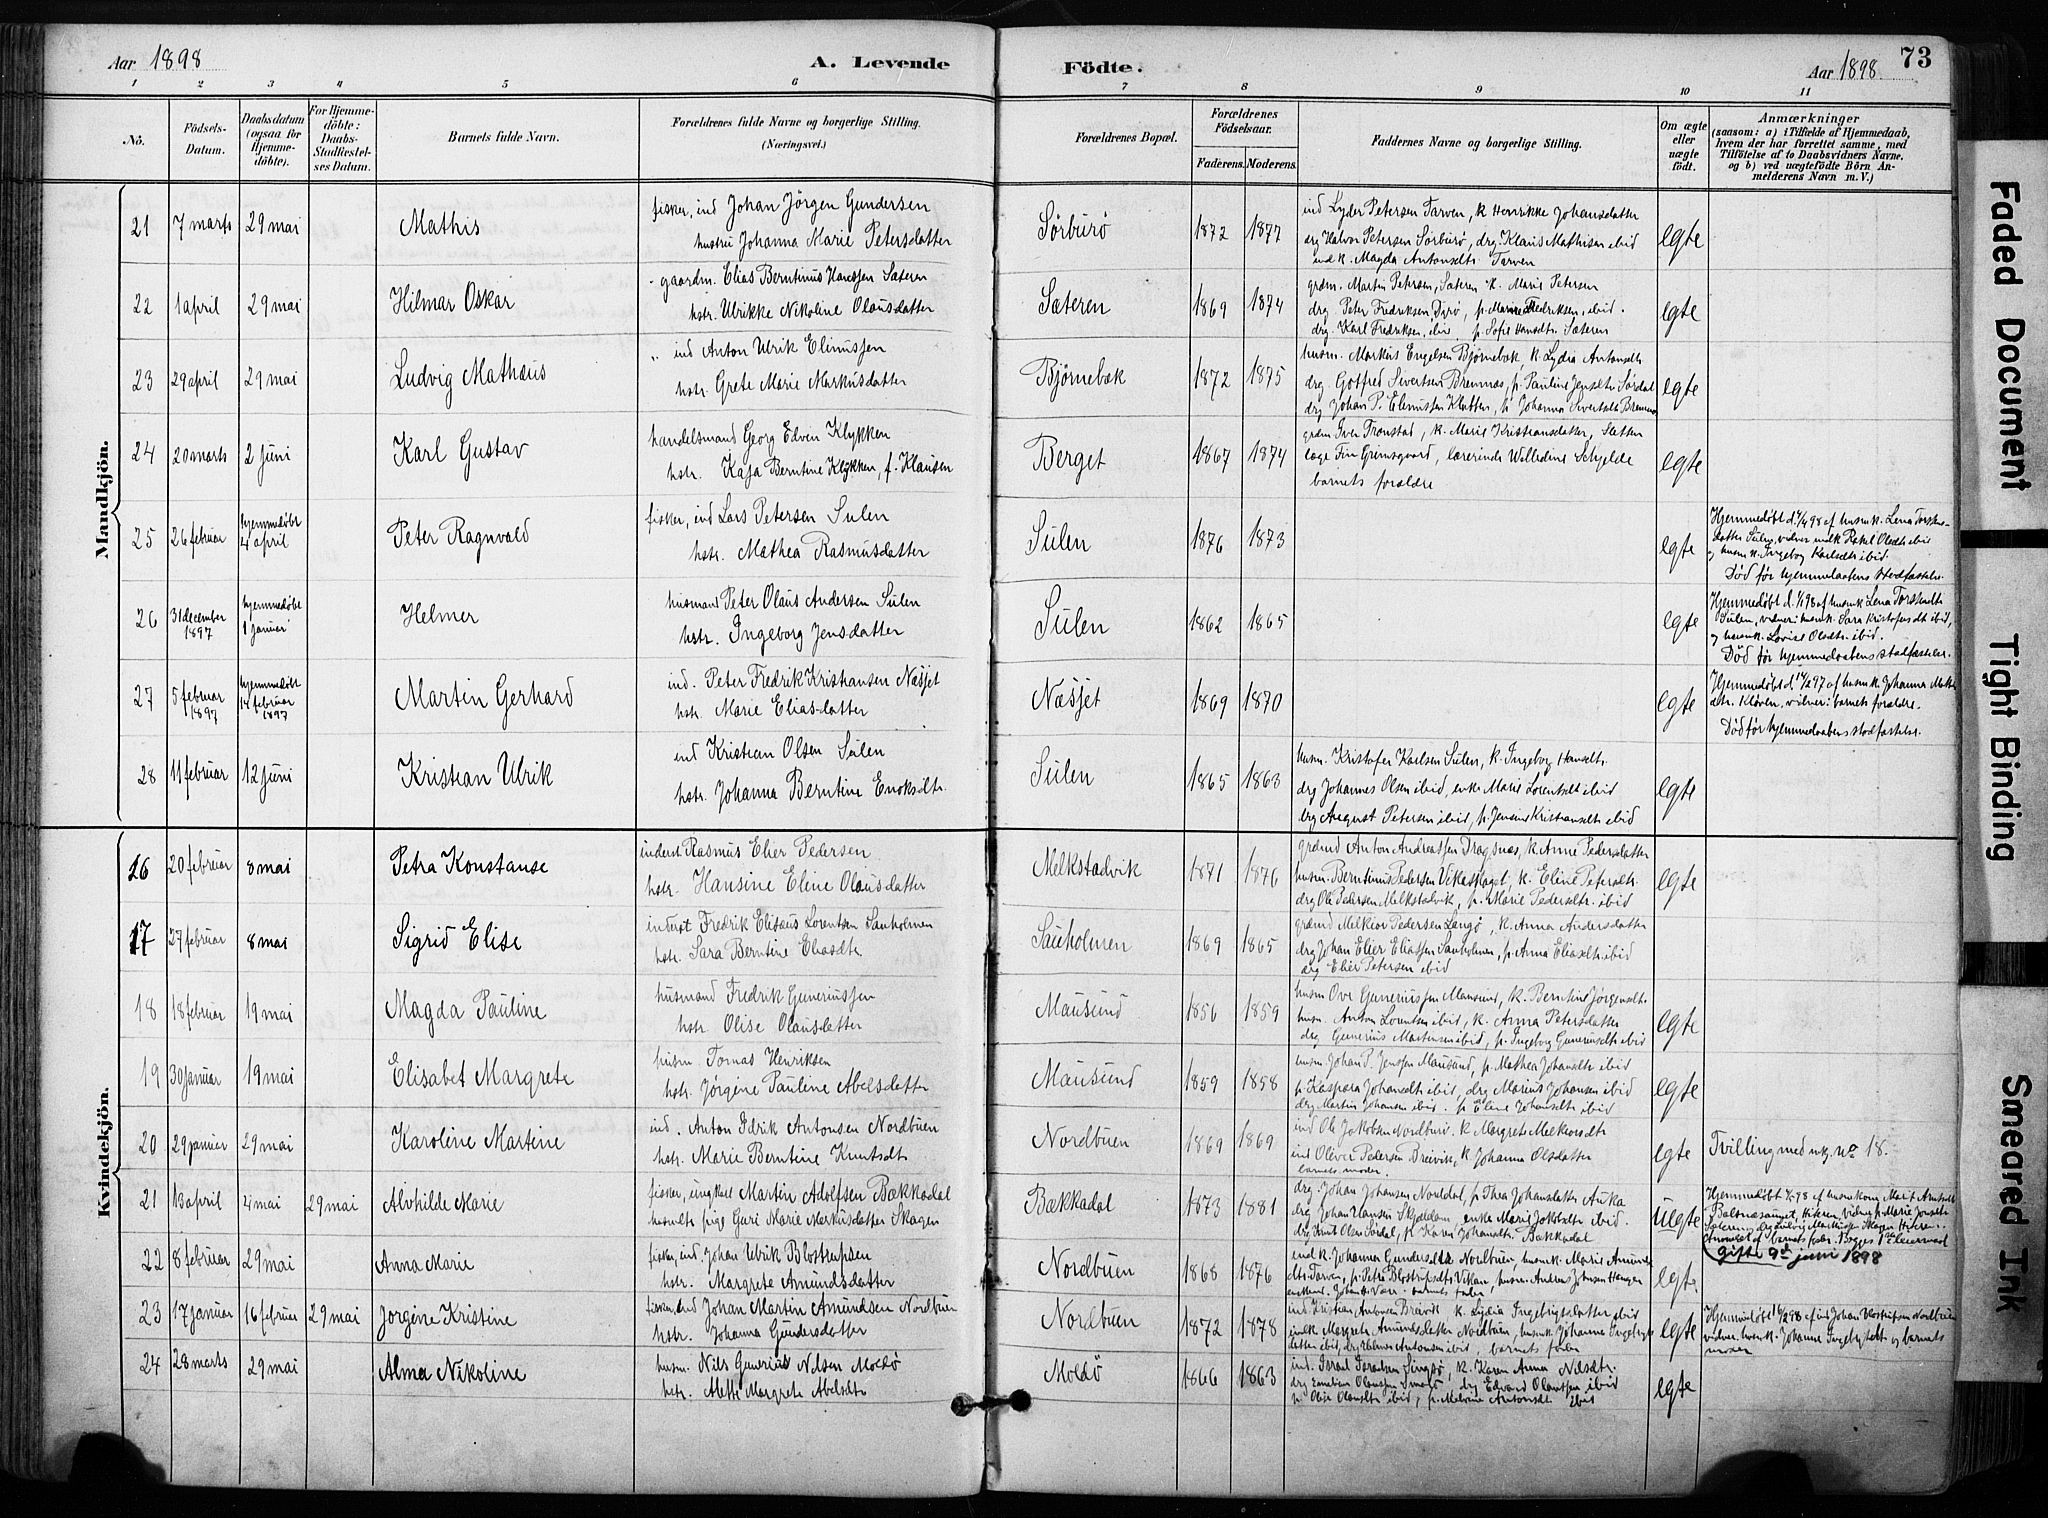 Aar 1898 A. Levende Födte. Aar 1898 73
1 2 3 4 5 6 7 8 9 10 11
No.
Födsels-Datum.
Daabsdatum (ogsaa for Hjemmedöbte).
For Hjemmedöbte: Daabs-Stadfestelses Datum.
Barnets fulde Navn.
Forældrenes fulde Navne og borgerlige Stilling. (Næringsvei.)
Forældrenes Bopæl.
Forældrenes Födselsaar.
Faderens. Moderens.
Faddernes Navne og borgerlige Stilling.
Om ægte eller uægte födt.
Anmærkninger
(saasom: a) i Tilfælde af Hjemmedaab,
hvem der har forrettet samme, med
Tilföielse af to Daabsvidners Navne,
og b) ved uægtefödte Börn An-
melderens Navn m. V.)
Mandkjön.
21 7 marts 29 mai Mathis
fisker, ind Johan Jörgen Gundersen
hustru Johanna Marie Petersdatter
Sörburö 1872 1877
ind Lyder Petersen Tarven, k Henrikke Johansdatter
drg Halvor Petersen Sörburö, drg. Klaus Mathisen ibid
ind k. Magda Antonsdtr Tarven
egte
22 1 april 29 mai Hilmar Oskar
gaardm. Elias Berntinus Hanssen Sæteren
hstr. Ulrikke Nikoline Olausdatter
Sæteren 1869 1874
grdm. Martin Petersen, Sæteren k. Marie Petersen
drg Peter Fredriksen Dyrö, p. Marie Fredriksen, ibid.
drg. Karl Fredriksen, ibid p. Sofie Hansdtr. Sæteren
egte
23 29 april 29 mai Ludvig Mathæus
" ind Anton Ulrik Elinussen
hstr. Grete Marie Markusdatter
Bjørnebæk 1872 1875
husm. Markus Engelsen Bjørnebæk, k Lydia Antonsdtr
drg. Gotfred Sivertsen Bremnæs, p. Pauline Jensdtr Sördal
drg Johan P. Elinussen Kletten, p Johanna Sivertsdtr Bremnæs
egte
24 20 marts 2 juni Karl Gustav
handelsmand Georg Edvin Klykken
hstr. Kaja Berntine Klykken, f. Klausen
Berget 1867 1874
grdm Iver Fronstad, k. Marie Kristiansdatter, Sletten
læge Finn Grimsgaard, lærerinde Willedine Schjelde
barnets forældre
egte
25 26 februar hjemmedøbt 4 april Peter Ragnvald
fisker, ind Lars Petersen Sulen
hstr. Mathea Rasmusdatter
Sulen 1876 1873
egte
Hjemmedøbt d. 4/4 98 af husm k. Lena Torstens-
datter Sulen, vidner indk Rakel Olsdtr ibid
og husm k. Ingeborg Karlsdtr ibid.
Död før hjemmedaabens stadfæstelse.
26 31 december 1897 hjemmedøbt 1 januar Helmer
husmand Peter Olaus Andersen Sulen
hstr. Ingeborg Jensdatter
Sulen 1862 1865
egte
Hjemmedøbt d. 1/1 98 af husmk Lena Torstendtr
Sulen, vidner: husm k. Sara Kristofersdt ibid,
og husm k. Lovise Olsdtr ibid.
Död før hjemmedaabens stadfæstelse.
27 5 februar 1897 hjemmedøbt 14 februar 1897 Martin Gerhard
ind. Peter Fredrik Kristiansen Næsjet
hstr. Marie Eliasdatter
Næsjet 1869 1870
egte
Hjemmedøbt d 14/2 97 af husm k. Johanna
dtr. Kløven, vidner: barnets forældre.
Död før hjemmedaabens stadfæstelse.
28 11 februar 12 juni Kristian Ulrik
ind Kristian Olsen Sulen
hstr. Johanna Berntine Enoksdtr.
Sulen 1865 1863
husm. Kristofer Karlsen Sulen, k. Ingeborg Hansdtr.
drg Johannes Olsen ibid, enke Marie Lorentsdtr ibid
drg August Petersen ibid, p. Jensine Kristiansdtr ibid
egte
Kvindekjön.
16 20 februar 8 mai Petra Konstanse
inderst Rasmus Elier Pedersen
hstr. Hansine Eline Olausdatter
Melkstadvik 1871 1876
grdmd Anton Andreassen Dragsnæs, k. Anne Pedersdatter
husm. Berntinus Pedersen Vikaskaget, k. Eline Petersdtr.
drg Ole Pedersen Melkstadvik, p. Marie Pedersdtr. ibid
egte
17 27 februar 8 mai Sigrid Elise
inderst Fredrik Elisæus Lorentsen Sauholmen
hstr. Sara Berntine Eliasdtr
Sauholmen 1869 1865
grdmd Melkior Pedersen Langö, k. Anna Andersdatter
drg Johan Elier Eliassen Sauholmen, p. Anna Eliasdtr. ibid
drg Elier Petersen ibid
18 18 februar 19 mai Magda Pauline
husmand Fredrik Guneriussen
hstr. Olise Olausdatter
Mausund 1856 1859
husm Ove Guneriussen Mausund, k. Berntine Jörgensdtr
husm. Anton Lorentsen ibid, k. Anna Petersdatter
drg Gunerius Martinsen ibid, p. Ingeborg Guneriusdtr ibid
egte
19 30 januar 19 mai Elisabet Margrete
husm Tomas Henriksen
hstr. Jörgine Pauline Abelsdatter
Mausund 1859 1858
husm Johan P. Jenssen Mausund, p. Mathea Johansdtr ibid
p. Kaspara Johansdtr ibid, drg Marius Johansen ibid
drg Martin Johansen ibid. p Eline Johansdtr ibid
egte
20 29 januar 29 mai Karoline Martine
ind. Anton Idrik Antonsen Nordbuen
hstr. Marie Berntine Knutsdtr
Nordbuen 1869 1869
ind Ole Jakobsen Nordbuen. k Margrete Melkiorsdtr
ind Oliver Pedersen Breivik, k Johanna Olsdatter
barnets moder.
egte
Tvilling med mkj. no 18.
21 13 april 4 mai 29 mai Alvhilde Marie
fisker, ungkarl Martin Adolfsen Bækkadal
hosmlte pige Guri Marie Markusdatter Skagen
Bækkadal 1873 1881
drg. Johan Johansen Nordal, p Thea Johansdatter Auka
drg Johan Hansen Skjældam, enke Marie Jakobsdtr ibid.
drg Knut Olsen Sördal, p. Karen Johansdtr. Bækkadal
Uegte
gifte 9de juni 1898
22 8 februar 29 mai Anna Marie
fisker, ind Johan Ulrik Blostrupsen
hstr. Margrete Amundsdatter
Nordbuen 1868 1876
ind k. Johanna Gundersdtr Nordbuen, husm k. Marie Amunds
dtr. Tarven, p. Petra Blostrupsdtr Vikan, husm. Anders Johnsen Haugen
egte.
23 17 januar 16 februar 29 mai Jörgine Kristine
fisker, ind Johan Martin Amundsen Nordbuen
hstr. Johanna Gundersdatter
Nordbuen 1872 1878
ind Kristian Antonsen Breivik k. Lydia Ingebrigtsdatter ibid
indk. Margrete Amundsdatter Nordbuen, husm k. Johanna Ingebrigts
datter ibid, drg Helmer Antonsen ibid, barnets fader
egte
Hjemmedøbt 16/2 98 af ind Johan Blostrupsen Nordbuen
vidner, husm k. Johanna Ingebrigtsdtr og barnets
moder
24 28 marts 29 mai Alma Nikoline
husm. Nils Gunerius Nilsen Moldö
hstr. Alette Margrete Abelsdtr
Moldö 1866 1863
ind. Israel Israelsen Singsö, k. Karen Anna Nilsdtr.
drg Emelius Olaussen Smågö, drg Edvard Olaussen ibid
p. Olise Olausdtr ibid, p. Malvine Antonsdtr. Ibid
egte
Faded Document
Tight Binding
Smeared Ink